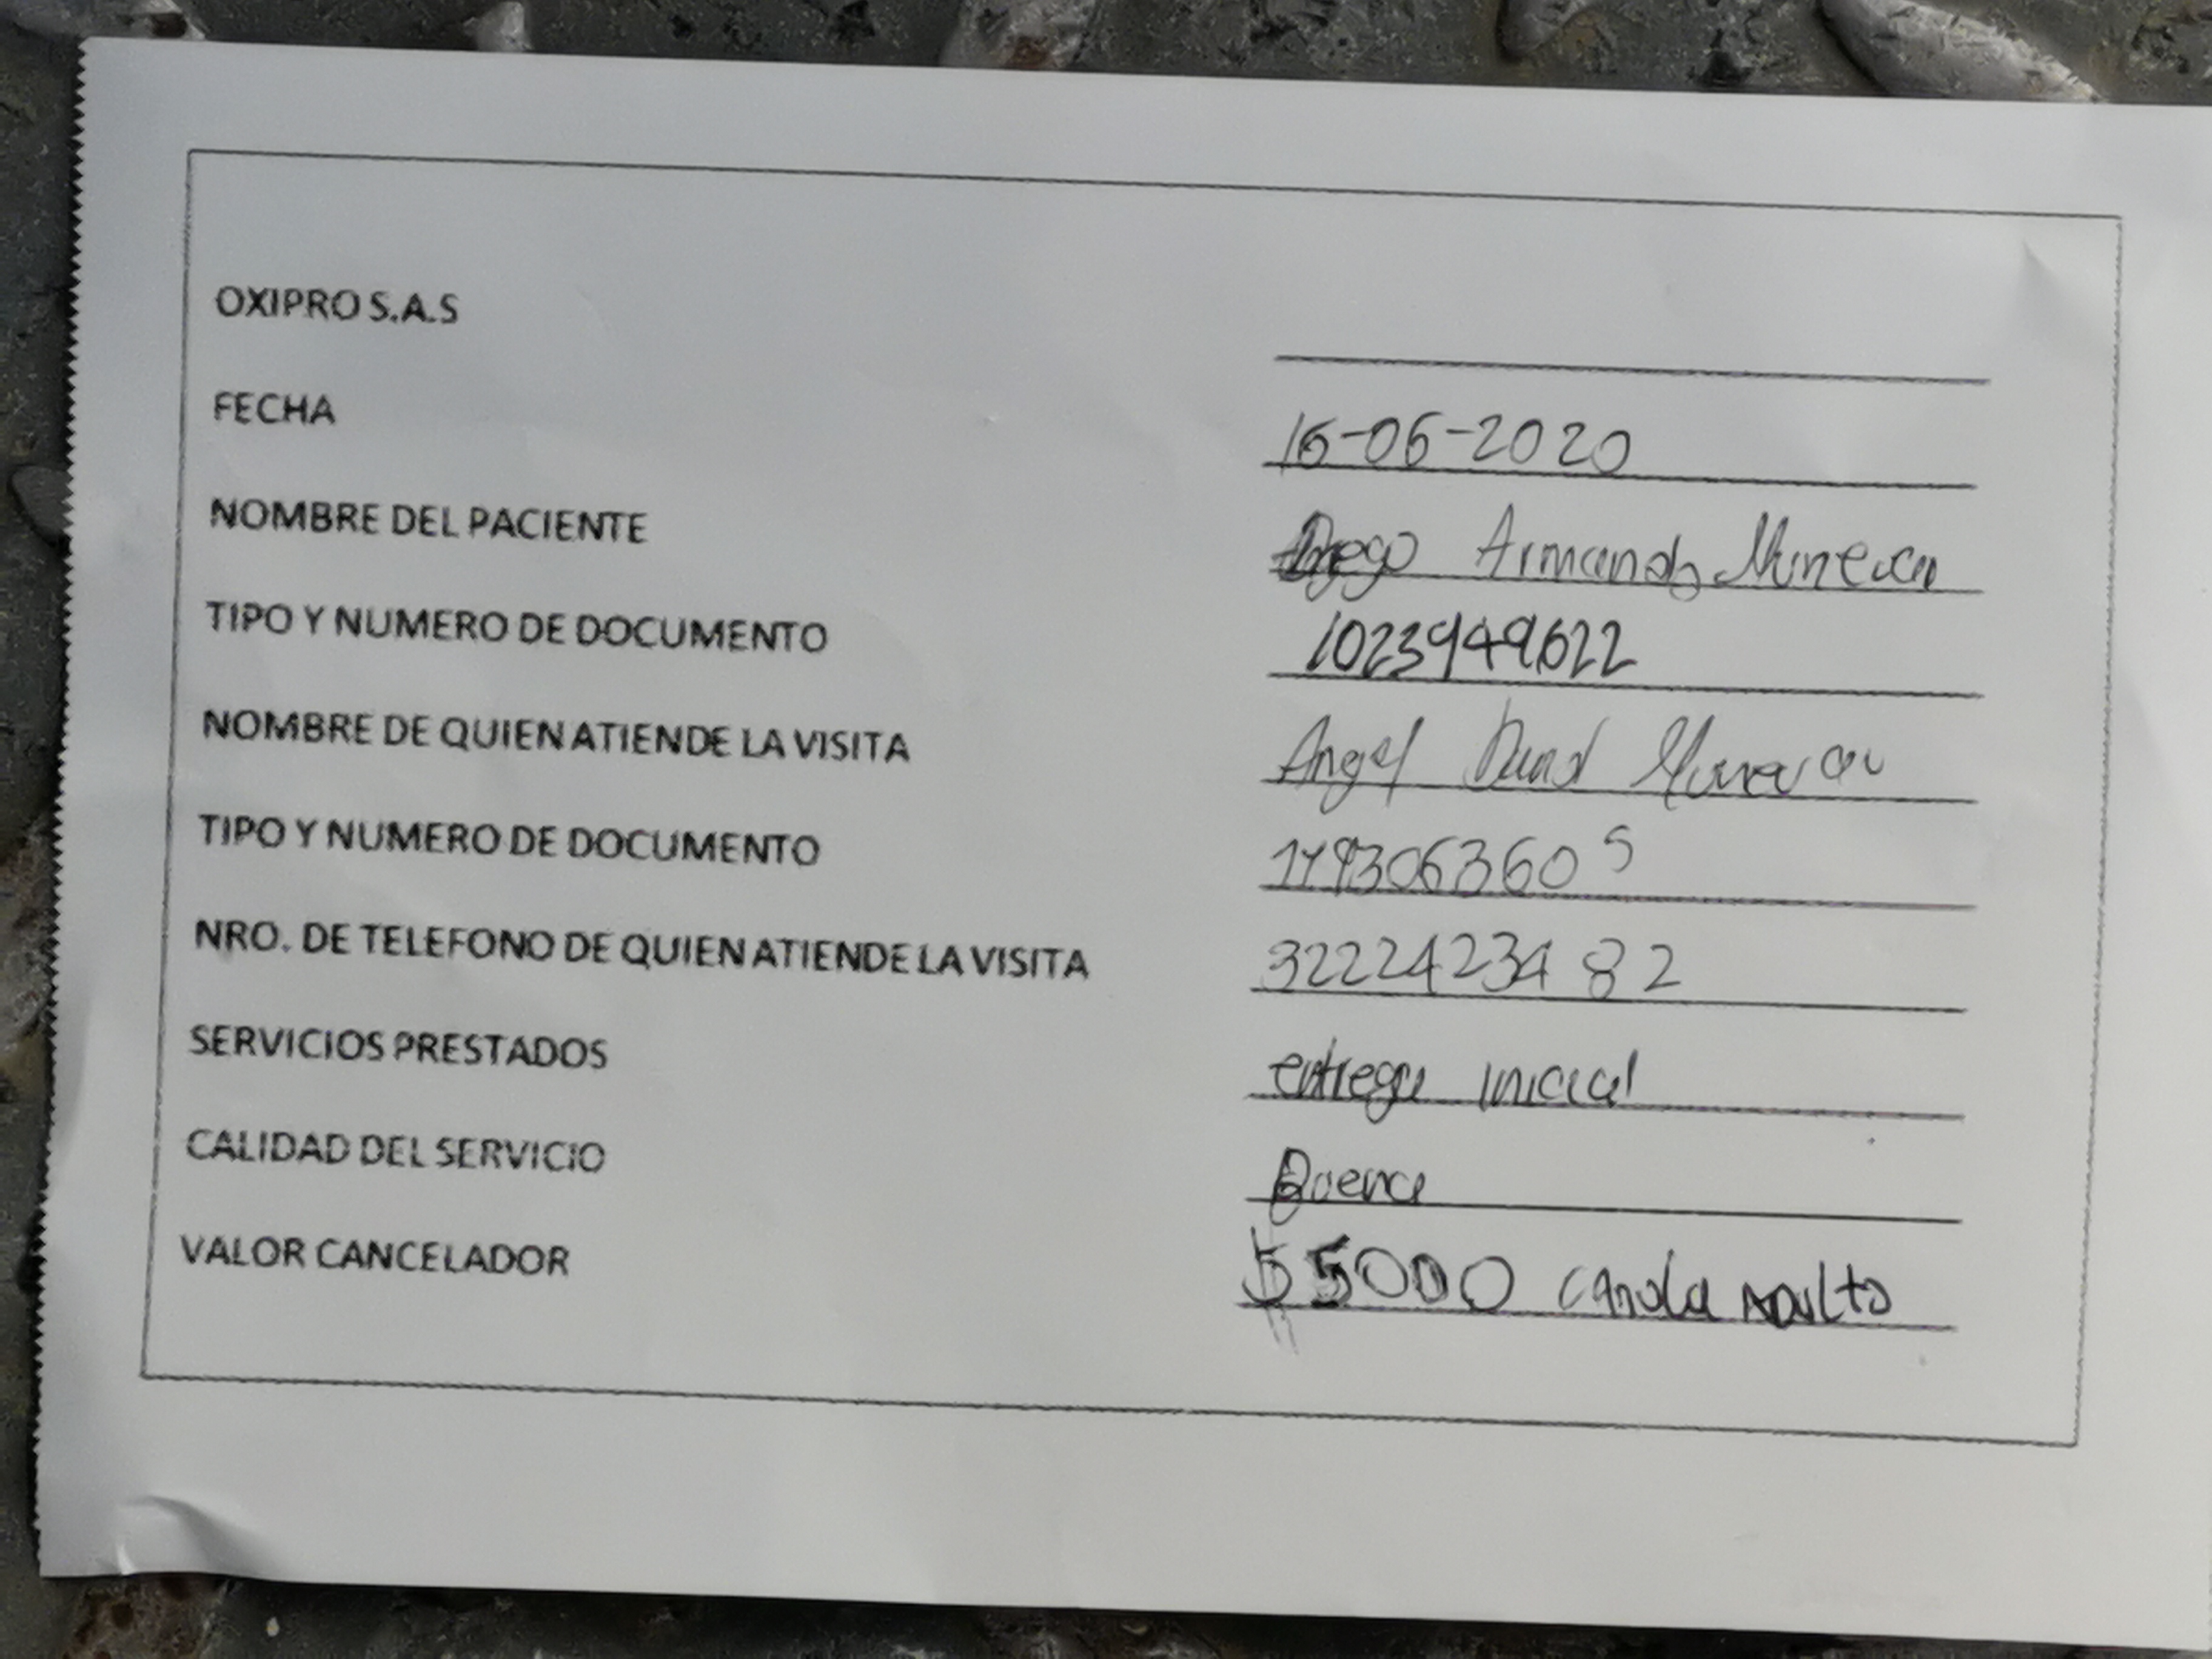 OXIPRO S.A.S
FECHA 16-06-2020
NOMBRE DEL PACIENTE Diego Armando Munevar
TIPO Y NUMERO DE DOCUMENTO 1023949622
NOMBRE DE QUIEN ATIENDE LA VISITA Angel David Munevar
TIPO Y NUMERO DE DOCUMENTO 3605
NRO. DE TELEFONO DE QUIEN ATIENDE LA VISITA 3222423482
SERVICIOS PRESTADOS entrega inicial
CALIDAD DEL SERVICIO Buena
VALOR CANCELADOR $5000 canola ADulto